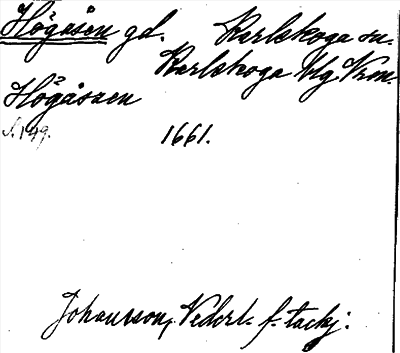 Högåsen gd. Karlskoga sn.
Karlskoga blg Vrm.
Högåsaen
s. 149. 1661.
Johansson, Vederl. f. tackj: